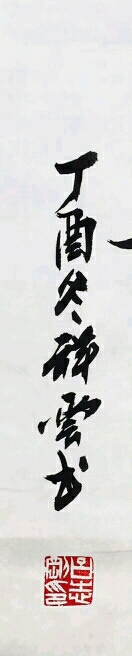 丁酉冬祥雲书